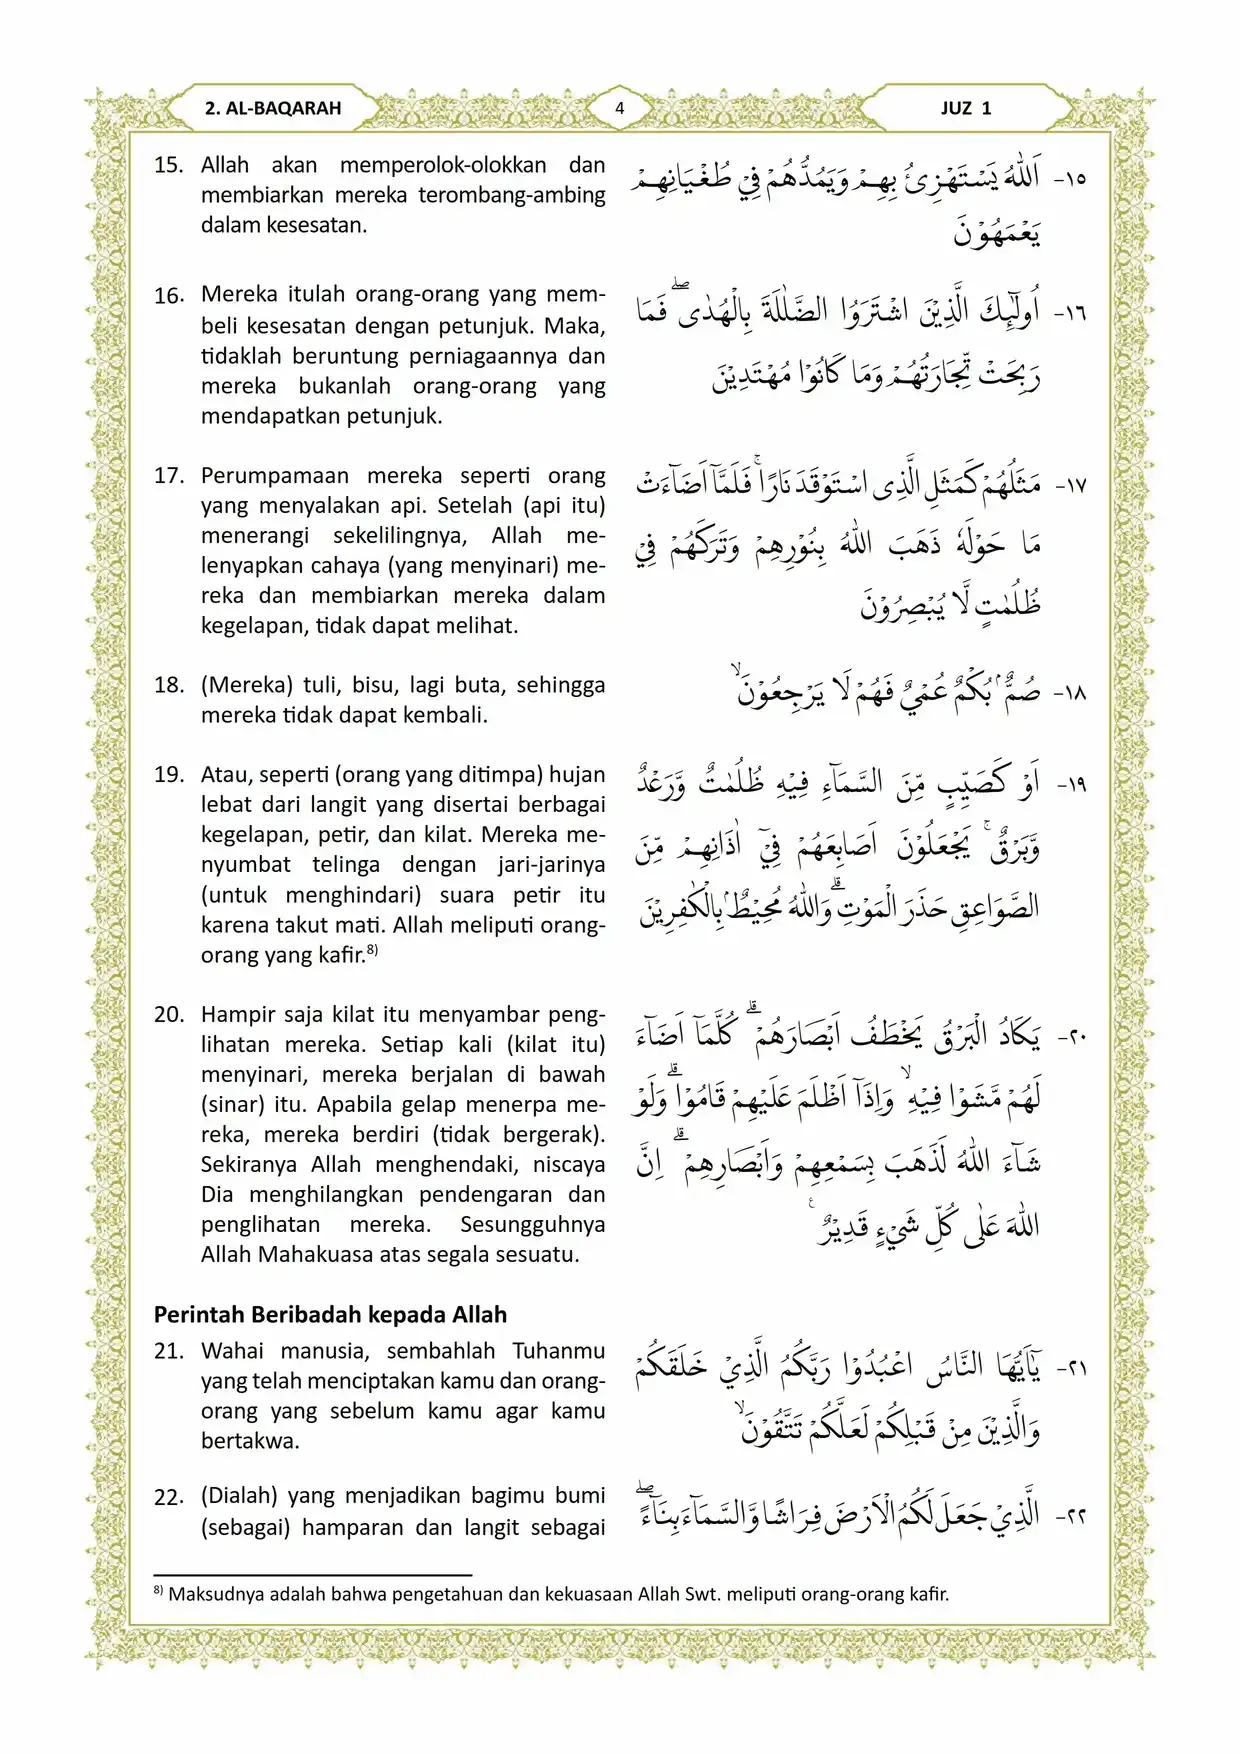 2. AL-BAQARAH
4
JUZ 1
15. Allah akan memperolok-olokkan dan
membiarkan mereka terombang-ambing
dalam kesesatan.
١٥- اَللّٰهُ يَسْتَهْزِئُ بِهِمْ وَيَمُدُّهُمْ فِيْ طُغْيَانِهِمْ
يَعْمَهُوْنَ
16. Mereka itulah orang-orang yang mem-
beli kesesatan dengan petunjuk. Maka,
tidaklah beruntung perniagaannya dan
mereka bukanlah orang-orang yang
mendapatkan petunjuk.
١٦- اُولٰۤىِٕكَ الَّذِيْنَ اشْتَرَوُا الضَّلٰلَةَ بِالْهُدٰىۖ فَمَا
رَبِحَتْ تِّجَارَتُهُمْ وَمَا كَانُوْا مُهْتَدِيْنَ
17. Perumpamaan mereka seperti orang
yang menyalakan api. Setelah (api itu)
menerangi sekelilingnya, Allah me-
lenyapkan cahaya (yang menyinari) me-
reka dan membiarkan mereka dalam
kegelapan, tidak dapat melihat.
١٧- مَثَلُهُمْ كَمَثَلِ الَّذِى اسْتَوْقَدَ نَارًاۚ فَلَمَّآ اَضَاۤءَتْ
مَا حَوْلَهٗ ذَهَبَ اللّٰهُ بِنُوْرِهِمْ وَتَرَكَهُمْ فِيْ
ظُلُمٰتٍ لَّا يُبْصِرُوْنَ
18. (Mereka) tuli, bisu, lagi buta, sehingga
mereka tidak dapat kembali.
١٨- صُمٌّ ۢ بُكْمٌ عُمْيٌ فَهُمْ لَا يَرْجِعُوْنَۙ
19. Atau, seperti (orang yang ditimpa) hujan
lebat dari langit yang disertai berbagai
kegelapan, petir, dan kilat. Mereka me-
nyumbat telinga dengan jari-jarinya
(untuk menghindari) suara petir itu
karena takut mati. Allah meliputi orang-
orang yang kafir.8)
١٩- اَوْ كَصَيِّبٍ مِّنَ السَّمَاۤءِ فِيْهِ ظُلُمٰتٌ وَّرَعْدٌ
وَّبَرْقٌۚ يَجْعَلُوْنَ اَصَابِعَهُمْ فِيْٓ اٰذَانِهِمْ مِّنَ
الصَّوَاعِقِ حَذَرَ الْمَوْتِۗ وَاللّٰهُ مُحِيْطٌ ۢبِالْكٰفِرِيْنَ
20. Hampir saja kilat itu menyambar peng-
lihatan mereka. Setiap kali (kilat itu)
menyinari, mereka berjalan di bawah
(sinar) itu. Apabila gelap menerpa me-
reka, mereka berdiri (tidak bergerak).
Sekiranya Allah menghendaki, niscaya
Dia menghilangkan pendengaran dan
penglihatan mereka. Sesungguhnya
Allah Mahakuasa atas segala sesuatu.
٢٠- يَكَادُ الْبَرْقُ يَخْطَفُ اَبْصَارَهُمْۗ كُلَّمَآ اَضَاۤءَ
لَهُمْ مَّشَوْا فِيْهِۙ وَاِذَآ اَظْلَمَ عَلَيْهِمْ قَامُوْاۗ وَلَوْ
شَاۤءَ اللّٰهُ لَذَهَبَ بِسَمْعِهِمْ وَاَبْصَارِهِمْۗ اِنَّ
اللّٰهَ عَلٰى كُلِّ شَيْءٍ قَدِيْرٌ ࣖ
Perintah Beribadah kepada Allah
21. Wahai manusia, sembahlah Tuhanmu
yang telah menciptakan kamu dan orang-
orang yang sebelum kamu agar kamu
bertakwa.
٢١- يٰٓاَيُّهَا النَّاسُ اعْبُدُوْا رَبَّكُمُ الَّذِيْ خَلَقَكُمْ
وَالَّذِيْنَ مِنْ قَبْلِكُمْ لَعَلَّكُمْ تَتَّقُوْنَۙ
22. (Dialah) yang menjadikan bagimu bumi
(sebagai) hamparan dan langit sebagai
٢٢- الَّذِيْ جَعَلَ لَكُمُ الْاَرْضَ فِرَاشًا وَّالسَّمَاۤءَ بِنَاۤءًۖ
8) Maksudnya adalah bahwa pengetahuan dan kekuasaan Allah Swt. meliputi orang-orang kafir.